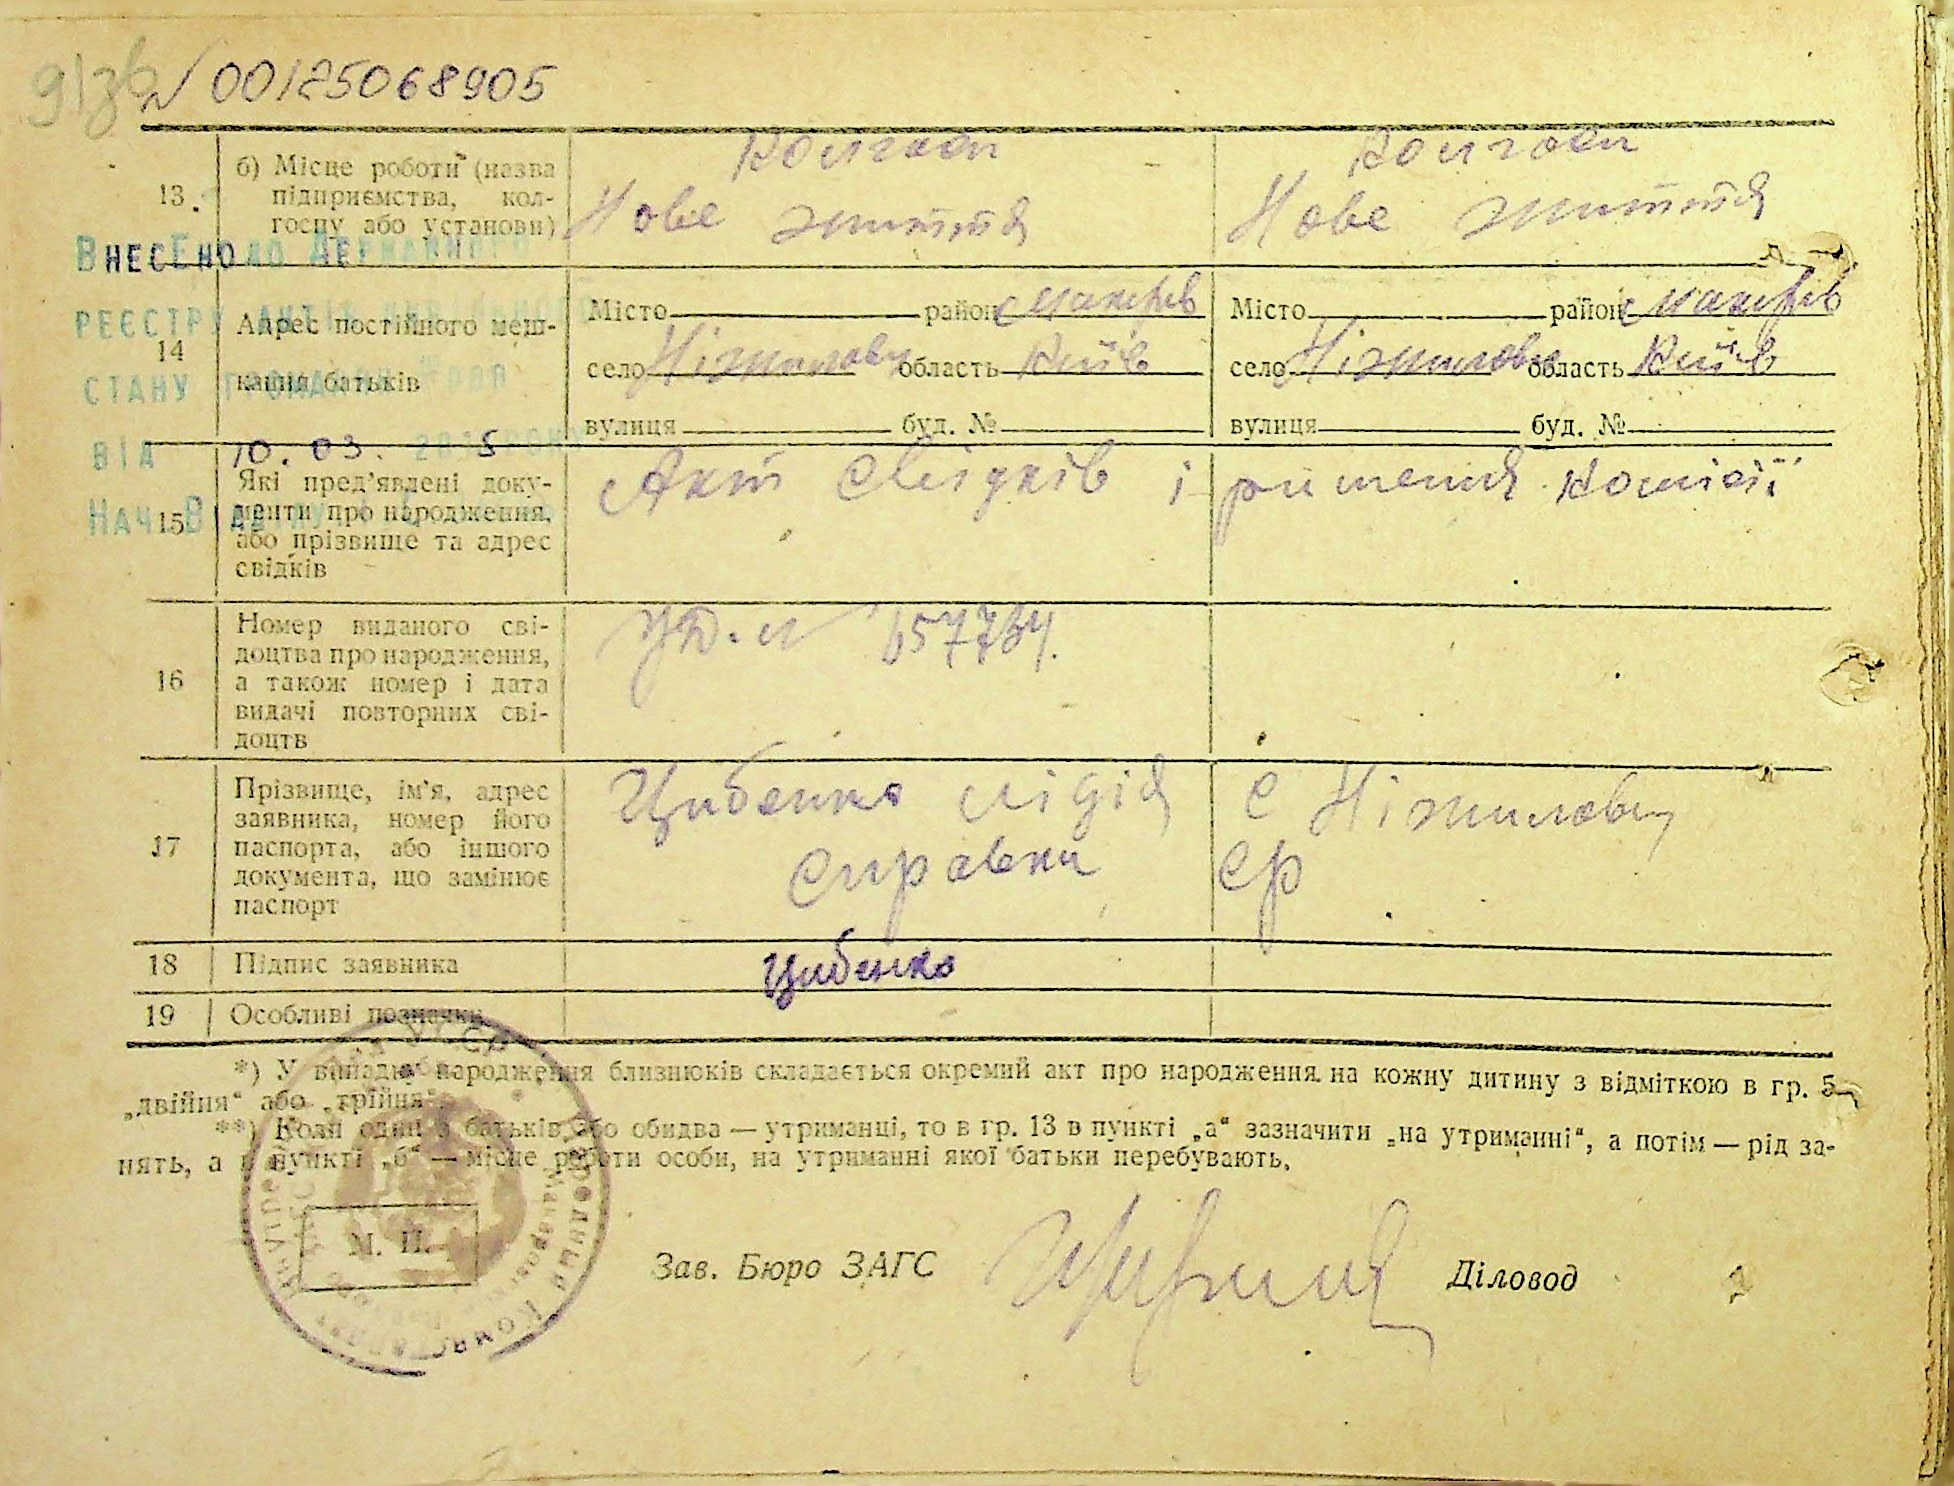 № 00125068905
13. б) Місце роботи (назва підприємства, колгоспу або установи)
Колгосп Нове життя
Колгосп Нове життя
ВНЕСЕНО ДО ДЕРЖАВНОГО
РЕЄСТРУ АКТІВ ЦИВІЛЬНОГО
СТАНУ ГРОМАДЯН
ВІД 10.03. 2015 РОКУ
НАЧ. ВІДДІЛУ
14 Адрес постійного мешкання батьків
Місто район Макарів
село Ніжиловичи область Київ
вулиця буд. №
Місто район Макарів
село Ніжиловичи область Київ
вулиця буд. №
15 Які пред'явлені доку-
менти про народження,
або прізвище та адрес
свідків
Акт свідків і ришення комісії
16 Номер виданого сві-
доцтва про народження,
а також номер і дата
видачі повторних сві-
доцтв
17 Прізвище, ім'я, адрес
заявника, номер його
паспорта, або іншого
документа, що замінює
паспорт
Цибенко Лідія с Ніжиловичи
справки ср
18 Підпис заявника
Цибенко
19 Особливі позначки
*) У випадку народження близнюків складається окремий акт про народження на кожну дитину з відміткою в гр. 5
„двійня“ або „трійня“.
**) Коли один з батьків або обидва — утриманці, то в гр. 13 в пункті „а“ зазначити „на утриманні“, а потім — рід за-
нять, а в пункті „б“ — місце роботи особи, на утриманні якої батьки перебувають.
М. П.
Зав. Бюро ЗАГС
Діловод